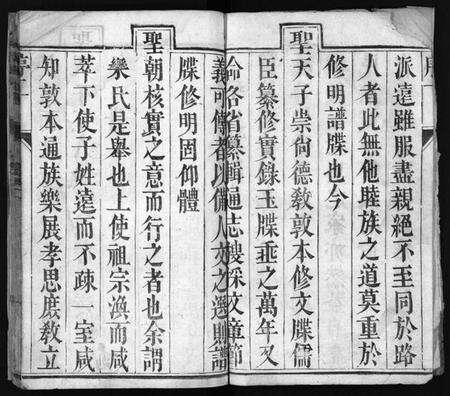 派遠雖服盡親絕不至同於路
人者此無他睦族之道莫重於
修明譜牒也今
聖天子崇尚德教敦本修文牒儒
臣纂修實錄玉牒垂之萬年又
命各省纂輯通志搜採文章節
義可傳者以備人文之選則譜
牒修明固仰體
聖朝核實之意而行之者也余謂
欒氏是舉也上使祖宗渙而咸
萃下使子姓遠而不疎一室咸
知敦本通族樂展孝思庶教立
序